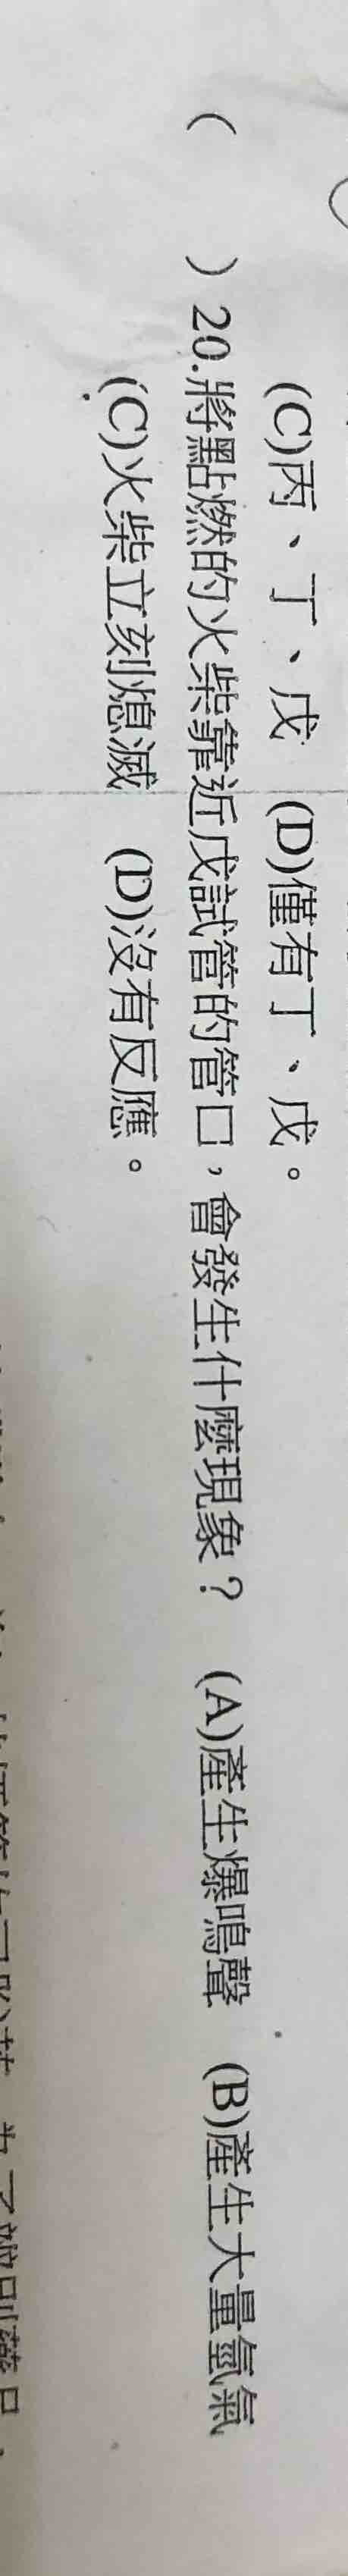 (C)丙、丁、戊 (D)僅有丁、戊。
( )20.將點燃的火柴靠近戊試管的管口,會發生什麼現象? (A)產生爆鳴聲 (B)產生大量氫氣
(C)火柴立刻熄滅 (D)沒有反應。